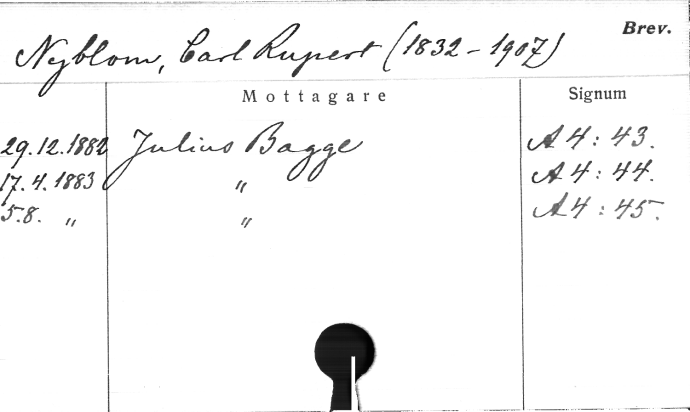 Brev.
Nyblom, Carl Rupert (1832-1907)
Mottagare Signum
29.12.1882 Julius Bagge A4:43.
17.4.1883 " A4:44.
5.8. " " A4:45.